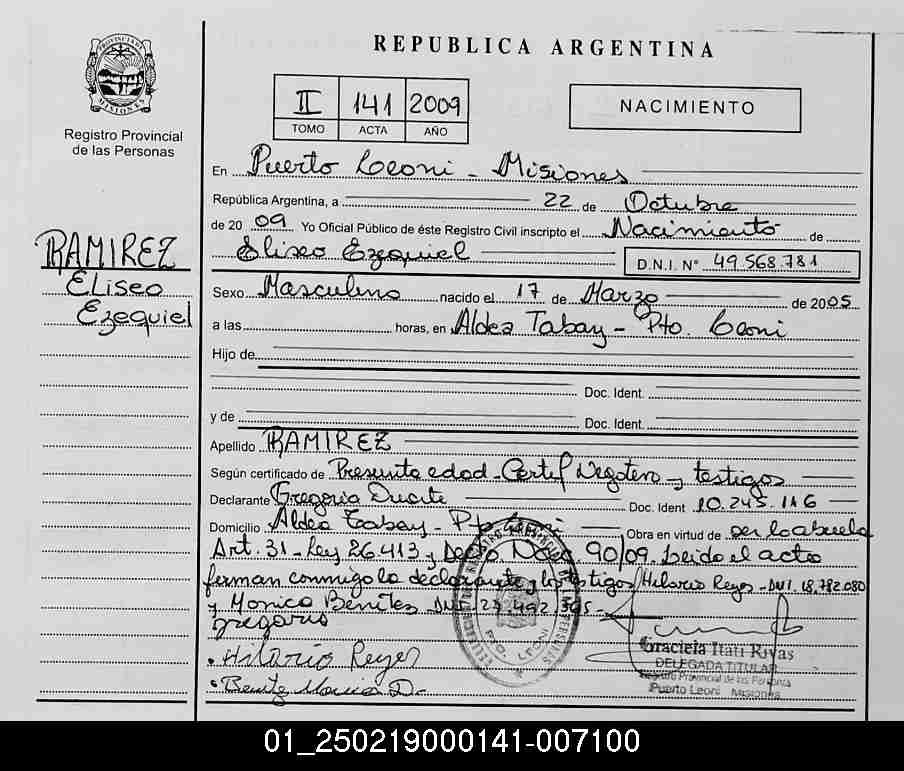 REPUBLICA ARGENTINA
PROVINCIA DE MISIONES
Registro Provincial
de las Personas
II 141 2009
TOMO ACTA AÑO
NACIMIENTO
RAMIREZ
ELiseo
Ezequiel
En Puerto Leoni - Misiones
República Argentina, a 22 de Octubre
de 20 09 Yo Oficial Público de éste Registro Civil inscripto el Nacimiento de
Eliseo Ezequiel D.N.I. N° 49.568.781
Sexo Masculino nacido el 17 de Marzo de 2005
a las horas, en Aldea Tabay - Pto. Leoni
Hijo de
Doc. Ident.
y de Doc. Ident.
Apellido RAMIREZ
Según certificado de Presunta edad - Certif Negativo y testigos
Declarante Gregoria Duarte Doc. Ident. 10.245.116
Domicilio Aldea Tabay - Pto Leoni Obra en virtud de ser la abuela
Art. 31 - Ley 26.413 y Decto Nac. 90/09. Leido el acta
firman conmigo la declarante y los testigos Hilario Reyes - DNI. 18.782.080
y Monica Benites - DNI 27.492.395 -
gregoria
Hilario Reyes
Benitez Monica D.
REGISTRO PROVINCIAL
PTO. LEONI
Graciela Itatí Rivas
DELEGADA TITULAR
Registro Provincial de las Personas
Puerto Leoni Misiones
01_250219000141-007100